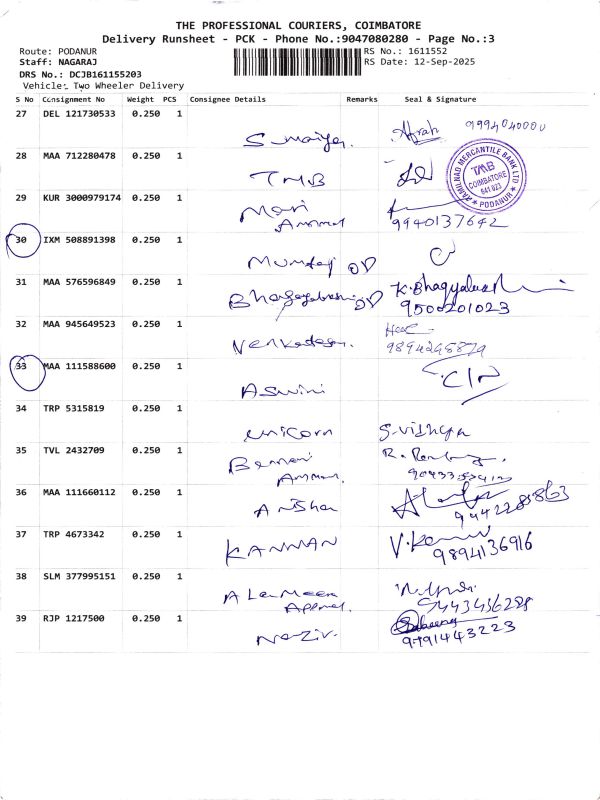 THE PROFESSIONAL COURIERS, COIMBATORE
Delivery Runsheet - PCK - Phone No.:9047080280 - Page No.:3
Route: PODANUR RS No.: 1611552
Staff: NAGARAJ RS Date: 12-Sep-2025
DRS No.: DCJB161155203
Vehicle: Two Wheeler Delivery
S No Consignment No Weight PCS Consignee Details Remarks Seal & Signature
27 DEL 121730533 0.250 1
9994040000
28 MAA 712280478 0.250 1
TMB
TAMILNAD MERCANTILE BANK LTD
TMB
COIMBATORE
641 023
* PODANUR *
29 KUR 3000979174 0.250 1
Mari
Ammal 9940137642
30 IXM 508891398 0.250 1
Mumtaj
31 MAA 576596849 0.250 1
K. Bhagyalaksh
9500201023
32 MAA 945649523 0.250 1
Venkadesan.
33 MAA 111588600 0.250 1
Aswini
34 TRP 5315819 0.250 1
unicorn S. vidhya
35 TVL 2432709 0.250 1
Ammal.
36 MAA 111660112 0.250 1
Anisha
37 TRP 4673342 0.250 1
KANNAN 9894136916
38 SLM 377995151 0.250 1
9443436288
39 RJP 1217500 0.250 1
Nazir. 9791443223